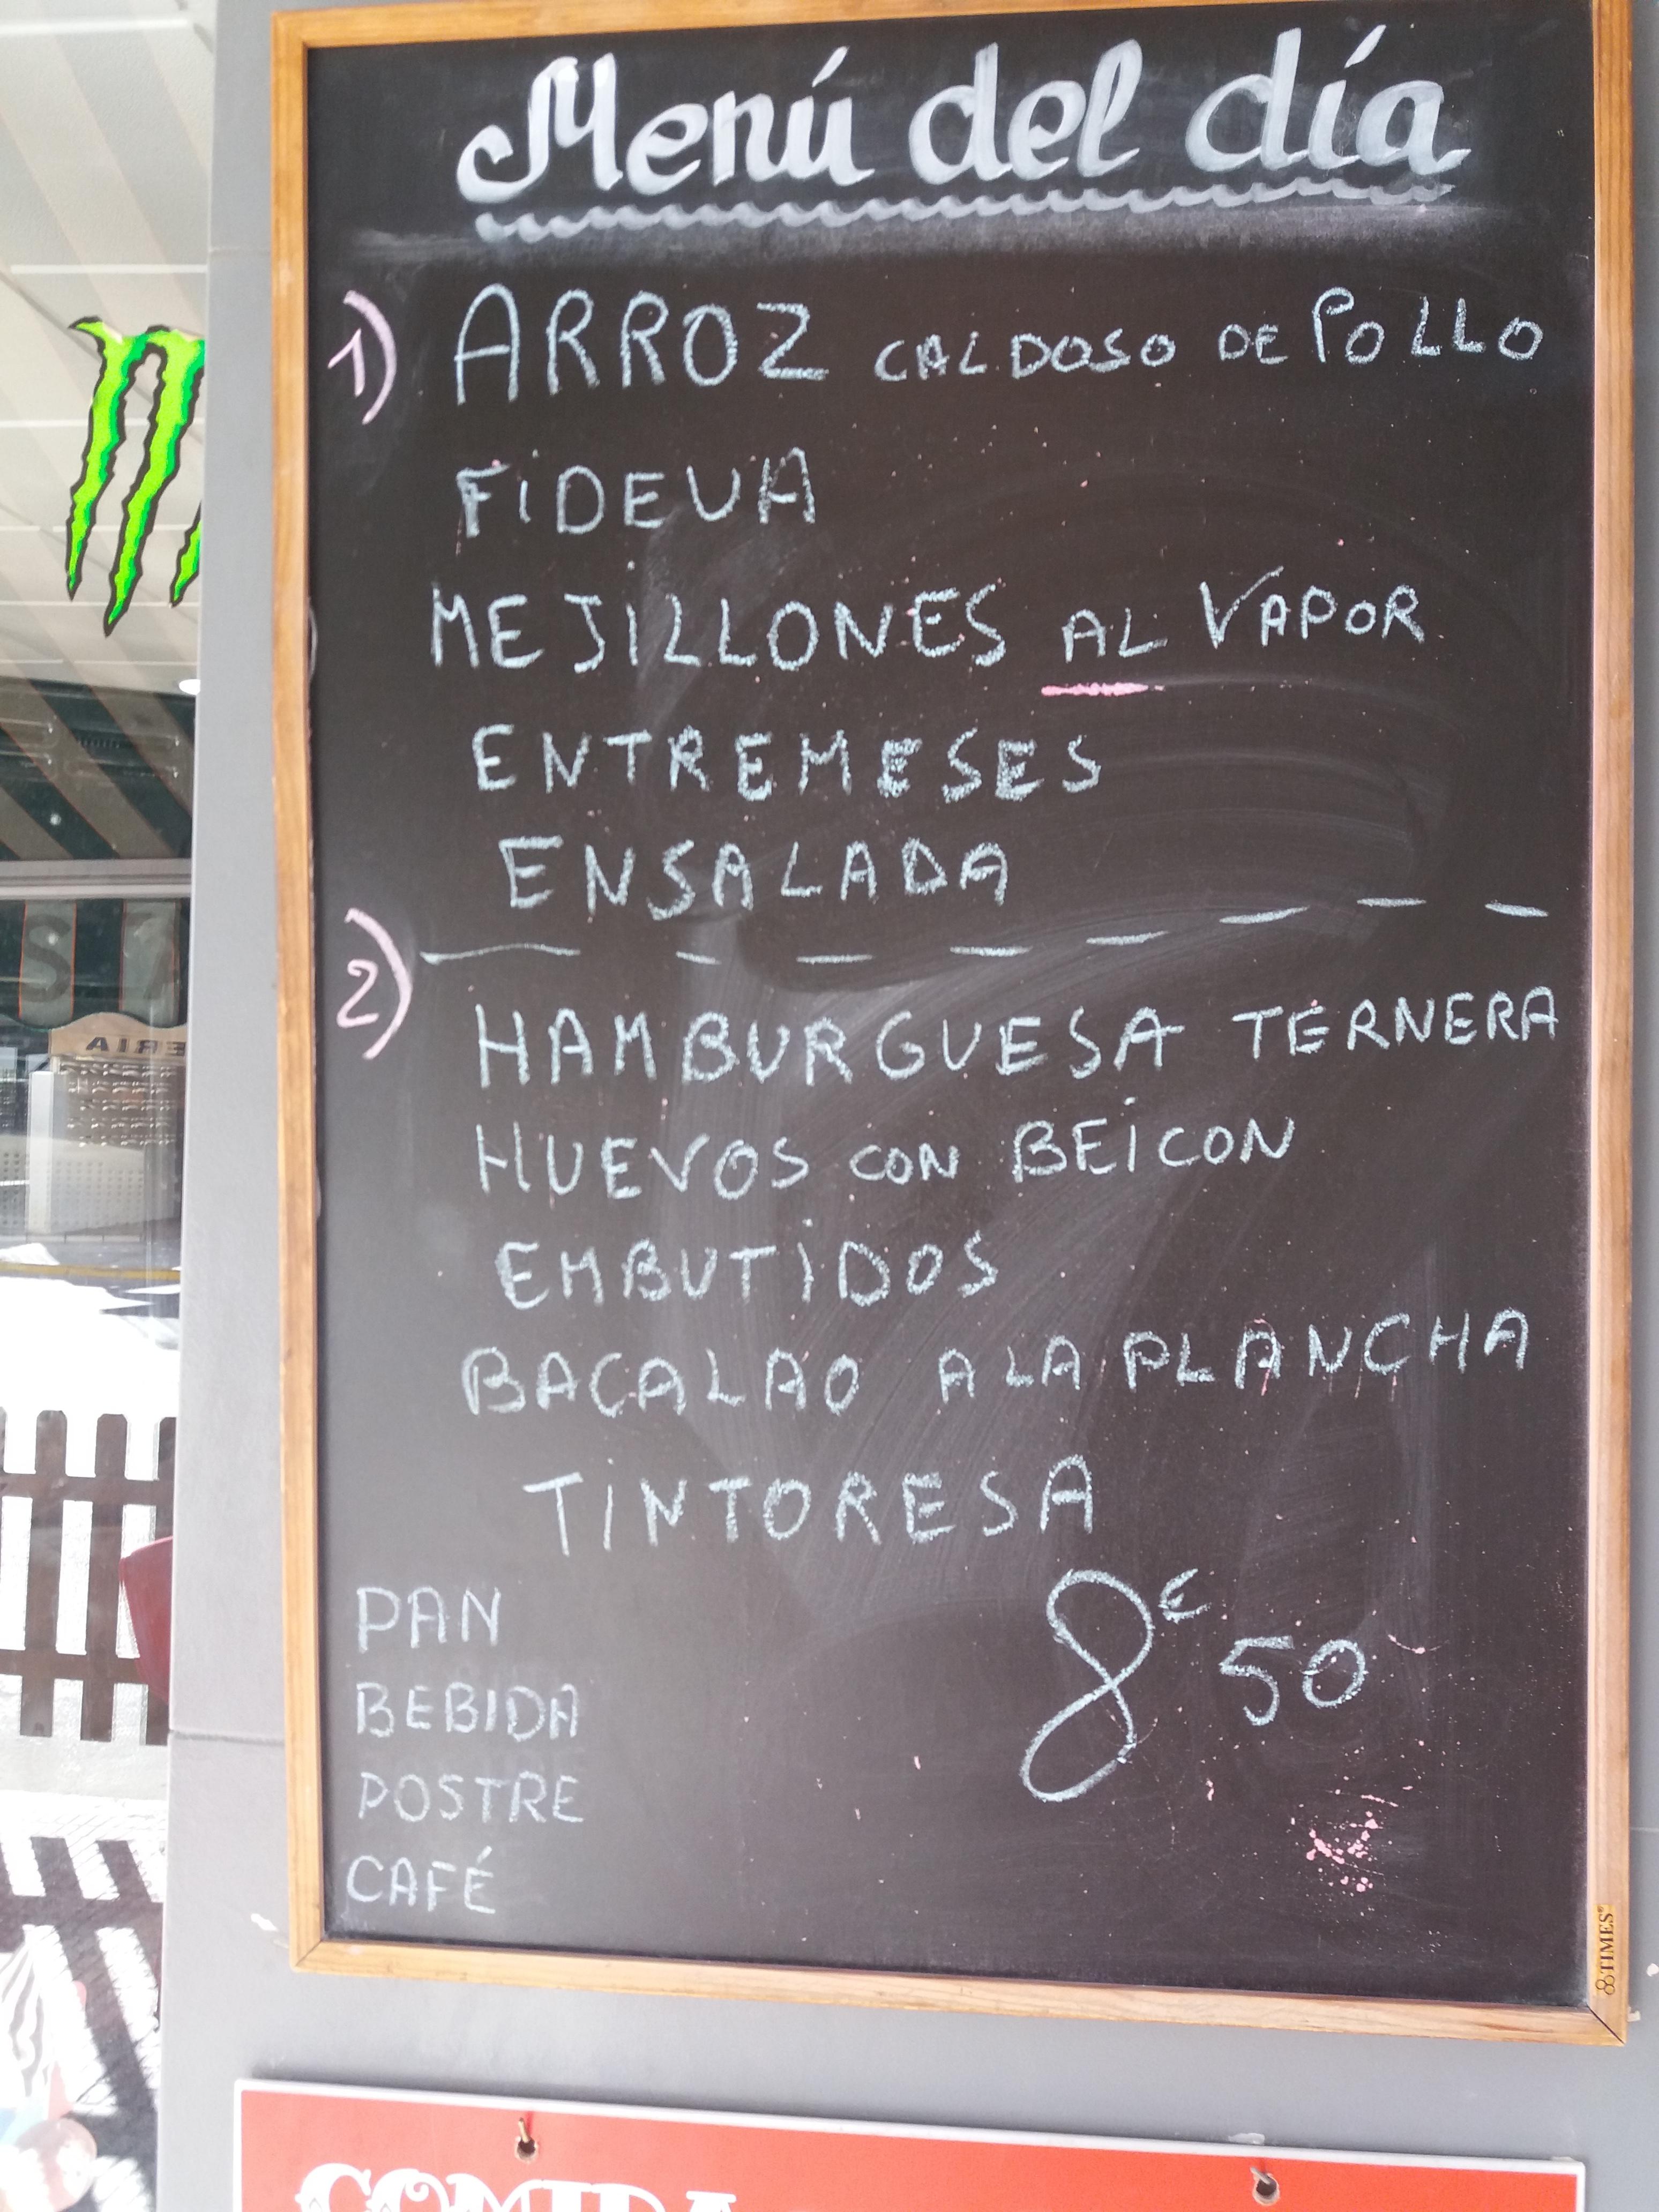 Menú del día
1) ARROZ CALDOSO DE POLLO
FIDEUA
MEJILLONES AL VAPOR
ENTREMESES
ENSALADA
2)
HAMBURGUESA TERNERA
HUEVOS CON BEICON
EMBUTIDOS
BACALAO A LA PLANCHA
TINTORESA
PAN
BEBIDA
POSTRE
CAFÉ
8€ 50
TIMES
COMIDA